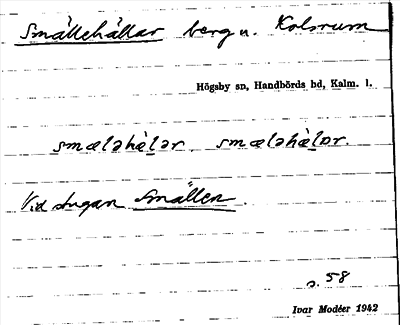 Smällehällar berg u. Kolsrum
Högsby sn, Handbörds bd, Kalm. l.
smæləhὰlər smæləhὰlar.
Vid stugan Smällen.
s. 58
Ivar Modéer 1942